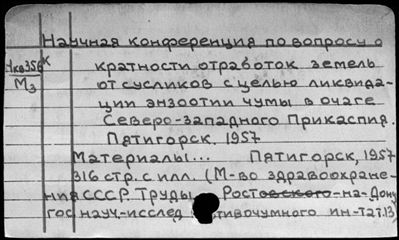 Научная конференция по вопросу о
Чкв356К кратности отработок земель
М3 от сусликов с целью ликвида-
ции энзоотии чумы в очаге
Северо-западного Прикаспия.
Пятигорск. 1957
Материалы... Пятигорск, 1957
316 стр. с илл. (М-во здравоохране-
ния СССР. Труды Ростовского-на-Дону
гос науч.-исслед тивочумного ин-та т.13